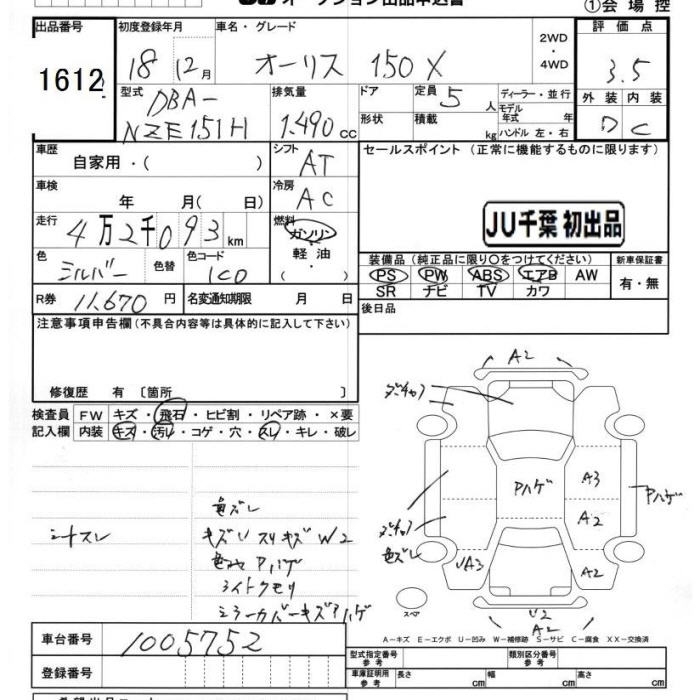 オークション出品申込書
①会場控
出品番号 初度登録年月 車名・グレード 評価点
1612 18 12月 オーリス 150X 2WD・4WD 3.5
型式 排気量 ドア 定員 5人 ディーラー・並行 外装 内装
DBA-
NZE151H 1.490cc 形状 積載 kg モデル年式 年式 ハンドル 左・右 D C
車歴 自家用・( ) シフト AT セールスポイント(正常に機能するものに限ります)
車検 年 月(日) 冷房 AC
走行 4万2千093km 燃料 ガソリン・軽油・
JU千葉 初出品
色 シルバー 色替 色コード 1C0
装備品(純正品に限り○をつけてください) 新車保証書
PS PW ABS エアB AW 有・無
SR ナビ TV カワ
R券 11,670円 名変通知期限 月 日
後日品
注意事項申告欄(不具合内容等は具体的に記入して下さい)
修復歴 有〔箇所 〕
検査員 FW キズ・飛石・ヒビ割・リペア跡・×要
記入欄 内装 キズ・汚レ・コゲ・穴・スレ・キレ・破レ
A2
A3
Pハゲ
Pハゲ
A2
色ズレ
シートスレ
キズU スリキズ W2
色ズレ
Pハゲ
UA3
A2
ライトクモリ
ミラーカバーキズPハゲ
スペア
U2
A2
A-キズ E-エクボ U-凹み W-補修跡 S-サビ C-腐食 XX-交換済
車台番号 1005752
型式指定番号 参考 類別区分番号 参考
登録番号
車庫証明用 参考 長さ cm 幅 cm 高さ cm